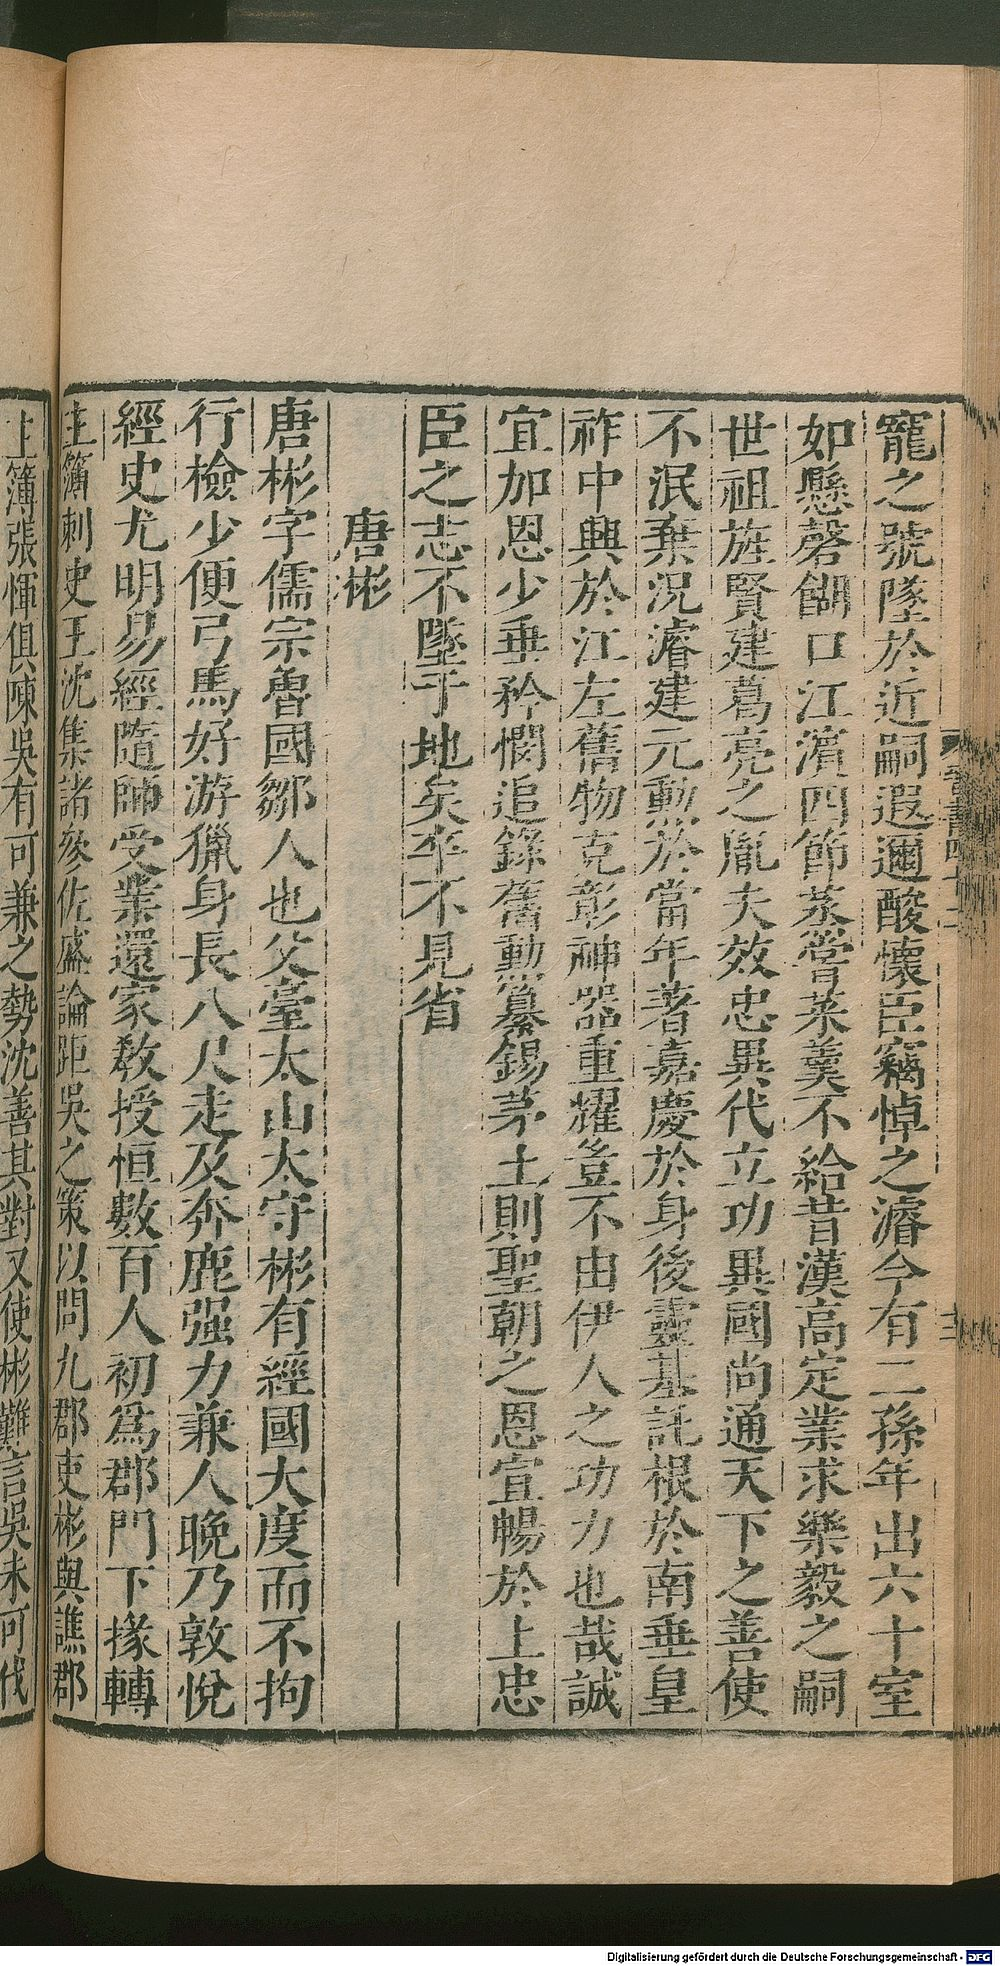 寵之號墜於近嗣遐邇酸懷臣竊悼之濬今有二孫年出六十室
如懸磬餬口江濱四節蒸嘗菜羹不給昔漢高定業求樂毅之嗣
世祖旌賢建葛亮之胤夫效忠異代立功異國尚通天下之善使
不泯棄況濬建元勳於當年著嘉慶於身後靈基託根於南垂皇
祚中興於江左舊物克彰神器重耀豈不由伊人之功力也哉誠
宜加恩少垂矜憫追錄舊勳纂錫茅土則聖朝之恩宣暢於上忠
臣之志不墜于地矣卒不見省
唐彬
唐彬字儒宗魯國鄒人也父臺太山太守彬有經國大度而不拘
行檢少便弓馬好游獵身長八尺走及奔鹿强力兼人晚乃敦悅
經史尤明易經隨師受業還家敎授恒數百人初爲郡門下掾轉
主簿刺史王沈集諸叅佐盛論距吳之策以問九郡吏彬與譙郡
主簿張惲俱陳吳有可兼之勢沈善其對又使彬難言吳未可伐
Digitalisierung gefördert durch die Deutsche Forschungsgemeinschaft - DFG